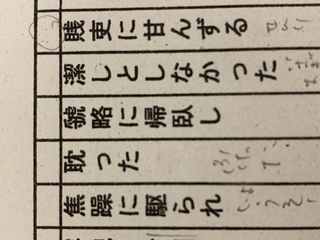 賤吏に甘んずる
せんり
潔しとしなかった
虢略に帰臥し
耽った
焦躁に駆られ